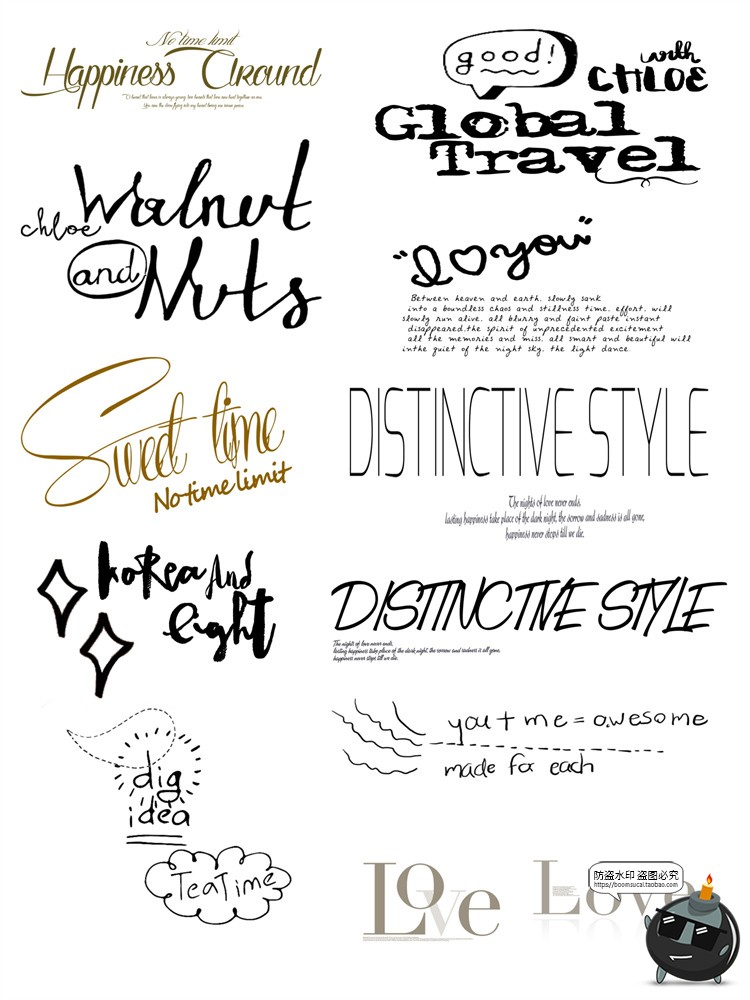 No time limit
Happiness Around
good!
with
CHLOE
Global
Travel
Walnut
chloe
and
Nuts
"I you"
Between heaven and earth, slowly sank
into a boundless chaos and stillness time, effort, will
slowly run alive, all blurry and faint paste instant
disappeared,the spirit of unprecedented excitement
all the memories and miss, all smart and beautiful will
inthe quiet of the night sky, the light dance.
Sweet time
No time limit
DISTINCTIVE STYLE
The nights of love never ends,
lasting happiness take place of the dark night, the sorrow and sadness is all gone,
happiness never stops till we die.
Korea And
light
DISTINCTIVE STYLE
The nights of love never ends,
lasting happiness take place of the dark night, the sorrow and sadness is all gone,
happiness never stops till we die.
you + me = awesome
made for each
dig
idea
TeaTime
Love
Love
防盗水印 盗图必究
https://boomsucai.taobao.com